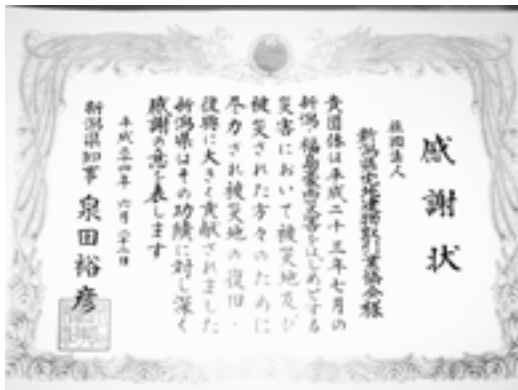 感謝状
社団法人
新潟県宅地建物取引業協会様
貴団体は平成二十三年七月の
新潟・福島豪雨災害をはじめとする
災害において被災地及び
被災された方々のために
尽力され被災地の復旧・
復興に大きく貢献されました
新潟県はその功績に対し深く
感謝の意を表します
平成二十四年 六月二十二日
新潟県知事 泉田裕彦